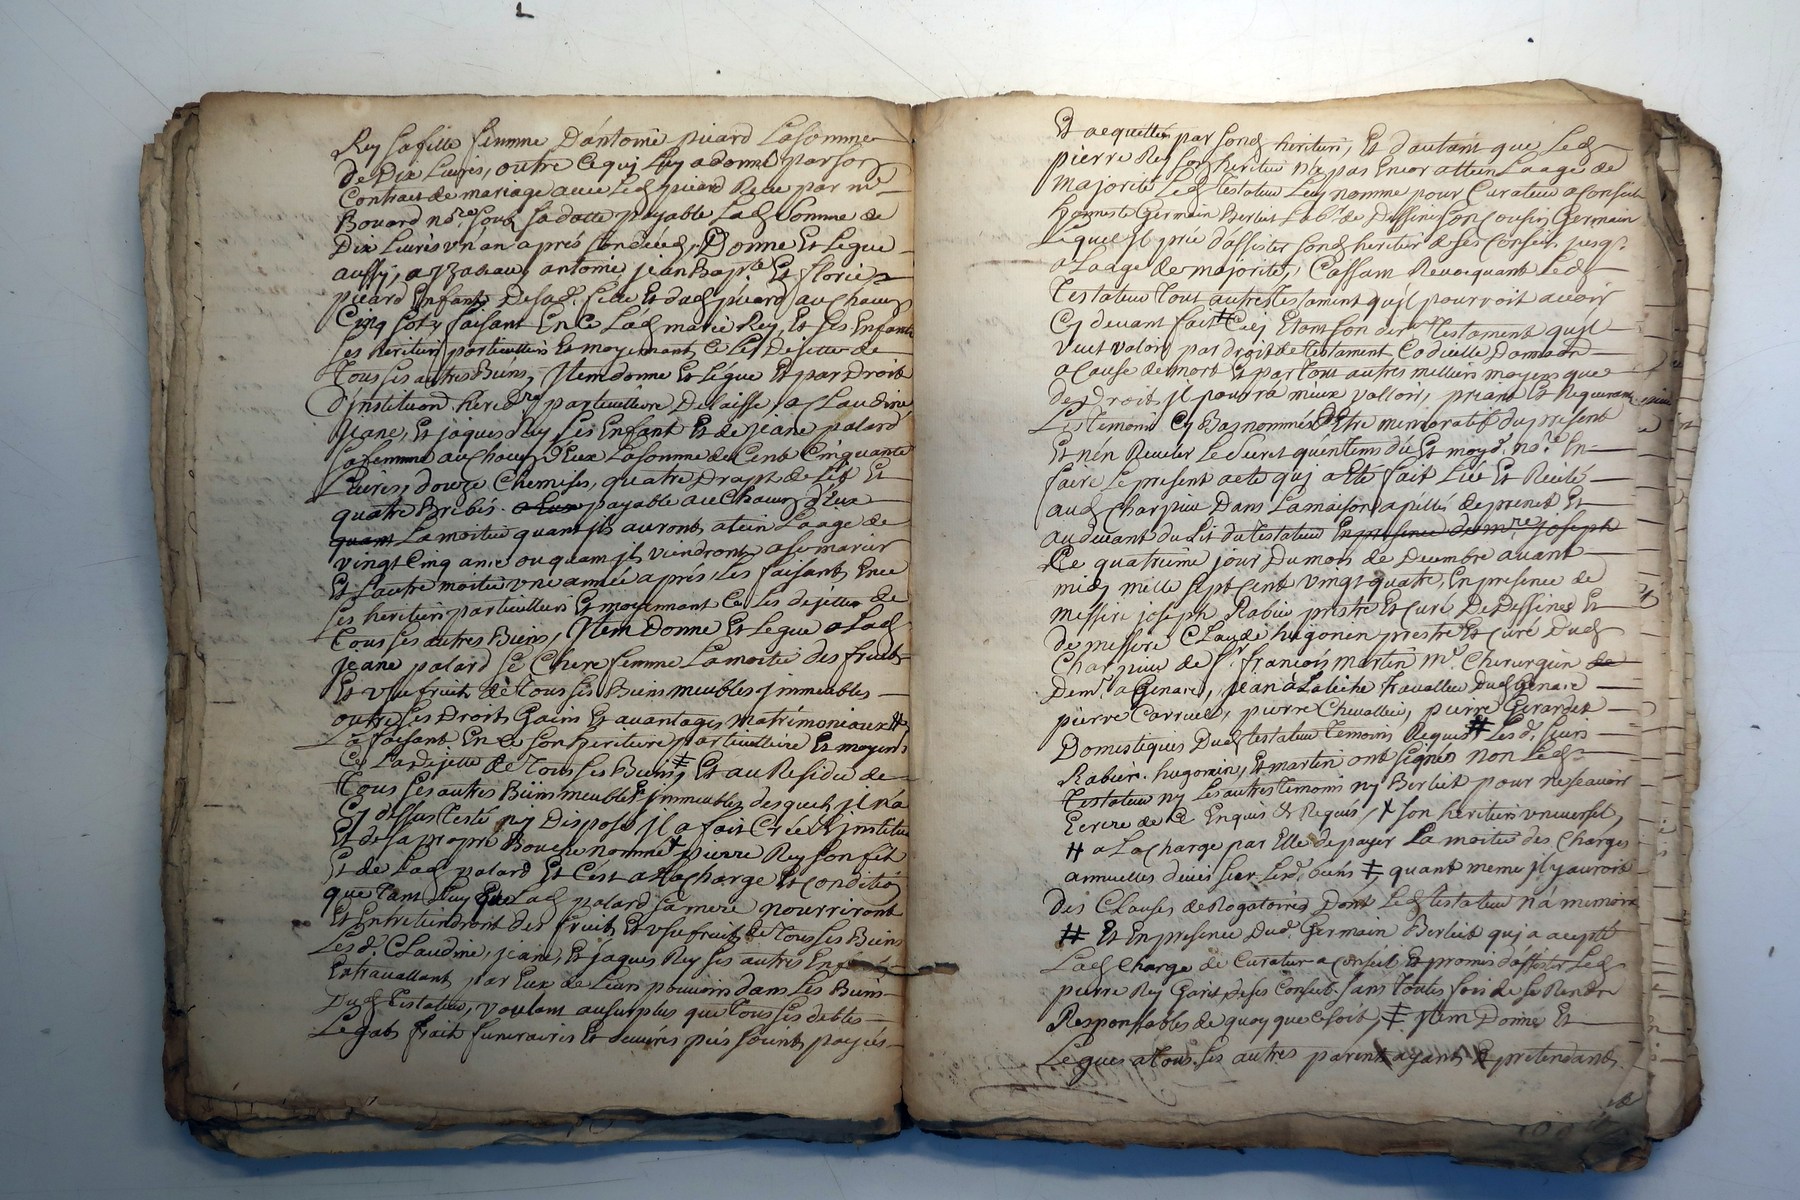 Rey sa fille femme D'antoine picard La somme
de Dix Livres, outre ce quj Luy a donné par son
Contract de mariage avec Led picard Receu par me
Bouard nore sous sa dotte payable Lad Somme de
Dix Livres vn an aprés son décéd, Donne Et Legue
aussy, a yzabeau, antoine, jean Bapte Et florie
picard Enfants De sad. fille Et dud picard au chacun
Cinq sots faisant En ce Lad marie Rey, Et ses Enfants
ses heritiers particulliers Et moyennant ce Les Dejette de
Tous ses autres Biens, Jtem donne Et Légue Et par Droit
d'jnstitution heredre particulliere Delaisse a Claudine
jeane, Et jaques Rey ses Enfant Et de jeane palard
sa femme au chacun d'Eux La somme de Cent Cinquante
Livres, douze Chemises, quatre Drapt de Lit Et
quatre Brebis. payable au Chacun d'Eux
La moitié quant jls auront atein Laage de
vingt Cinq ans ou quam jls viendront a se marier
Et L'autre moitié vne année aprés, Les faisant En ce
ses heritiers particulliers Et moyennant ce Les dejetter de
Tous ses autres Biens, Jtem Donne Et Legue a Lad
jeane palard se Chere femme La moitié des fruits
Et vsufruit de Tous ses Biens meubles jmmeubles
outre ses Droits Gains Et avantages matrimoniaux #
La faisant En ce son heritiere particulliere Et moyent
Ce La dejette de Tous ses Biens, ǂ Et au Residu de
Tous ses autres Biens meubles jmmeubles desquels jl n'a
Cy dessus Testé ny Disposé jl a fait Créé & jnstitue
Et de sa propre Bouche nommé + pierre Rey son fit
Et de Lad palard Et C'est a la charge Et condition
que Tant Luy que Lad palard sa mere nourriront
Et Entretiendront des fruits Et vsufruits de Tous ses Biens
Lesd. Claudine, jeane, Et jaques Rey ses autres Enfants
En travallant par Eux de Leurs pouvoirs dans Les Biens
Dud Testateur, voulant au surplus que Tous ses debtes
Legats frait funeraires Et œuvres pies soient payés
Et acquittes par sond heritier, Et d'autant que Led
pierre Rey son heritier n'a pas Encor attein Laage de
majorité Led Testateur Luy nomme pour Curateur a conseil
honneste Germain Berliet Labr de Dessines son cousin Germain
Lequel jl prie d'assister sond heritier de ses Conseils jusqs
a Laage de majorité, Cassant Revocquant Led
Testateur Tout autres Testament qu'jl pourroit avoir
Cy devant fait # Cecj Etant son dernier Testament qu'jl
veut valoir par droit de Testament, Codicille, Donnaon
a Cause de mort Et par Tout autres meilleurs moyens que
de Droit jl pourra mieux valloir, priant Et Requerant
Les Temoins Cy Bas nommés D'Etre memoratifs du present
Et n'en Reveler Le Secret qu'en tems dû Et moyd. nore En
faire Le present acte quj a Eté fait Leu Et Recité
aud Charpieu Dans La maison
au devant du Lit du Testateur En presence de mre joseph
Le quatrieme jour Du mois de Decembre avant
midy mille sept cent vingt quatre, En presence de
messire joseph Rabier prestre Et curé De Dessines Et
de messire Claude hugonin prestre Et curé Dud
Charpieu de sr. françois martin me. Chirurgien de
Demt a Genare, jean travalleur Dud Genare
pierre Carruel, pierre Chevallier, pierre Gerardet
Domestiques Dud Testateur Temoins Requis # Lesd. sieurs
Rabier. hugonin, Et martin ont signés non Led
Testateur ny Les autres Temoins ny Berliet pour ne scavoir
Ecrire de ce Enquis & Requis, + son heritier vniversel,
# a La charge par Elle de payer La moitié des Charges
annuelles deües sur Lesd. biens ǂ quant meme jl y auroit
des Clauses derogatoires Dont Led Testateur n'a memoire
# Et En presence Dud. Germain Berliet quj a acepté
Lad Charge de Curateur a conseil Et promis d'assister Led
pierre Rey de ses Conseils sans Toutes fois de se Rendre
Responsables de quoy que ce soit, ǂ Jtem Donne Et
Legues a Tous ses autres parents ayant & pretendants